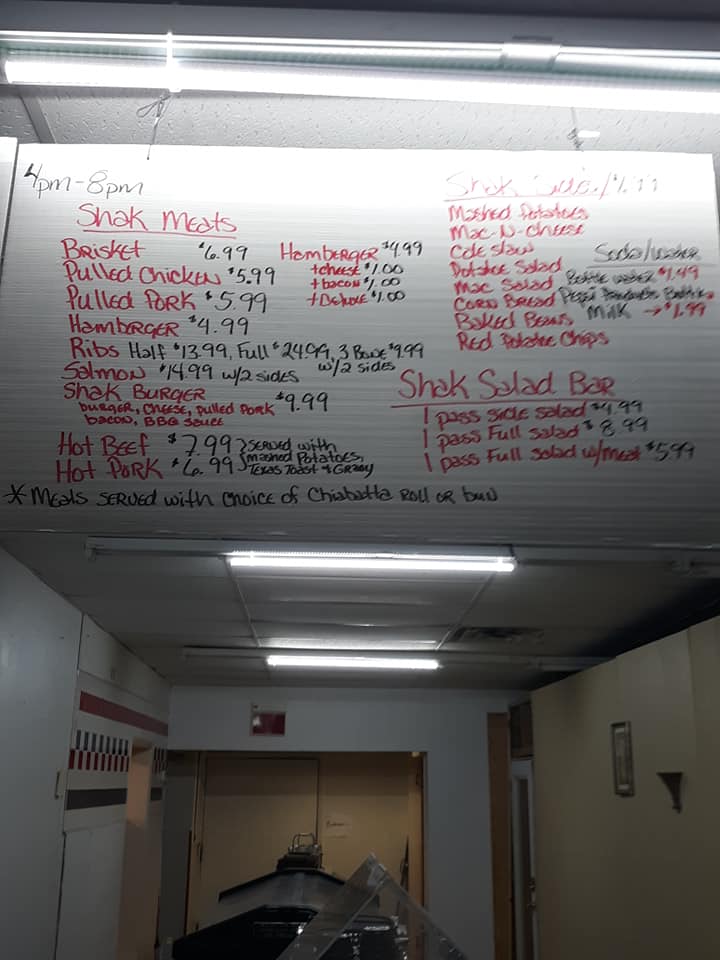 4pm-8pm
Shak Meats
Brisket $6.99
Pulled Chicken $5.99
Pulled Pork $5.99
Hamberger $4.99
Ribs Half $13.99, Full $24.99, 3 Bone $9.99
w/2 sides
Salmon $14.99 w/2 sides
Shak Burger $9.99
burger, cheese, pulled pork
bacon, BBQ sauce
Hot Beef $7.99 } served with
Hot Pork $6.99 } mashed Potatoes,
Texas Toast & Gravy
* Meals served with choice of Chiabatta Roll or bun
Hamberger $4.99
+cheese $1.00
+bacon $1.00
+Deluxe $1.00
Shak
Mashed Potatoes
Mac-N-Cheese
Cole slaw
Potatoe Salad
Mac Salad
Corn Bread
Baked Beans
Red Potatoe Chips
Soda/water
Bottle water $1.49
Pepsi Products
Milk → $1.99
Shak Salad Bar
1 pass side salad $4.99
1 pass Full salad $8.99
1 pass Full salad w/meat $5.99